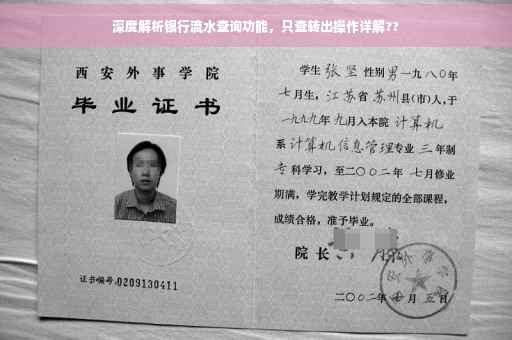 深度解析银行流水查询功能，只查转出操作详解??
西安外事学院
毕业证书
证书编号:0209130411
学生 张坚 性别 男 一九八〇年
七月生，江苏省 苏州县(市)人，于
一九九九年 九月入本院 计算机
系 计算机信息管理专业 三 年制
专 科学习，至二〇〇二年 七月修业
期满，学完教学计划规定的全部课程，
成绩合格，准予毕业。
院长
二〇〇二年 月 五日